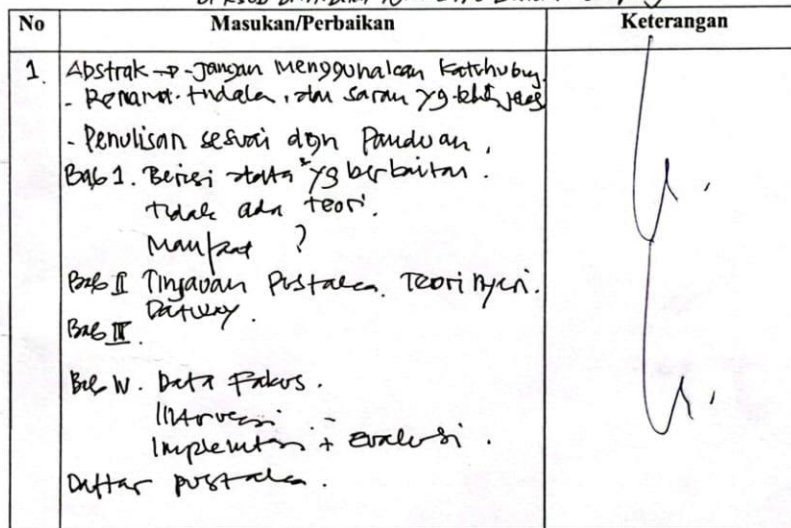 No Masukan/Perbaikan Keterangan
1. Abstrak → - Jangan Menggunakan
- tindakan, dan saran yg lebih jelas
- Penulisan sesuai dgn Panduan,
Bab 1. Berisi data² yg berkaitan.
tidak ada teori.
Manfaat ?
Bab II Tinjauan Pustaka. Teori Nyeri.
Bab III.
Bab IV. Data Fokus.
Intervensi
Implementasi + Evaluasi.
Daftar pustaka.